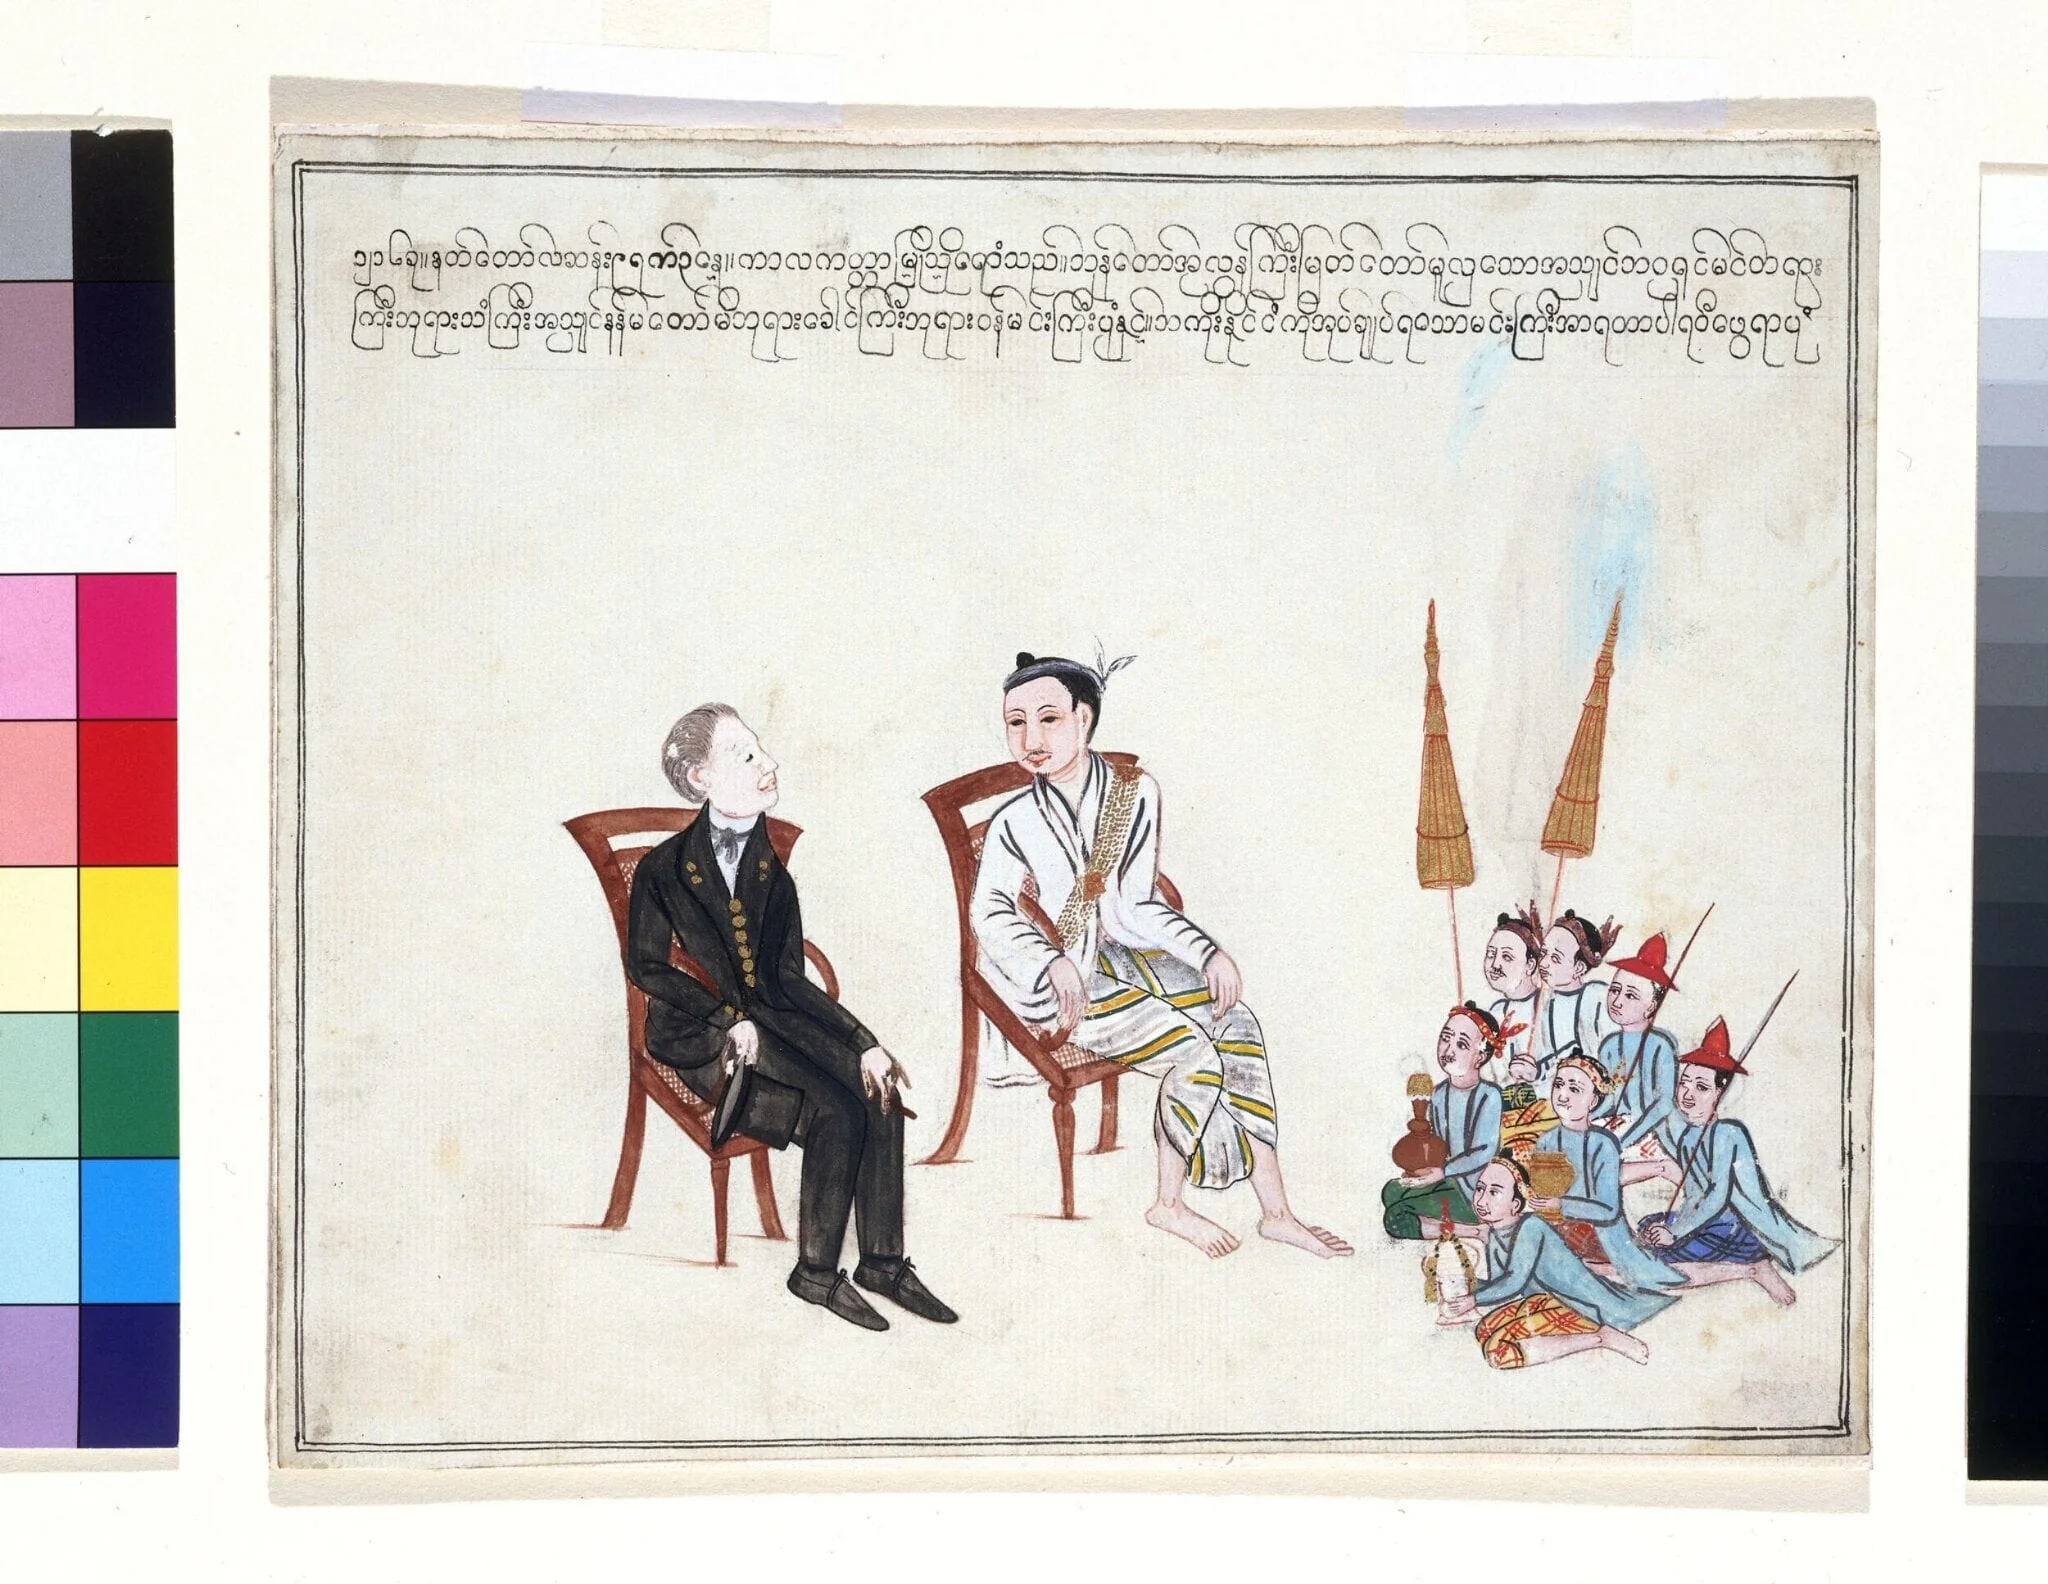 ၁၂၁၆ခု။နတ်တော်လဆန်း၉ရက်၃နေ့။ကာလကတ္တားမြို့သို့ရောဝ်သည်။ဘုန်တော်အလွန်ကြီးမြတ်တော်မူလှသောအသျှင်ဘဝရှင်မင်တရား
ကြီးဘုရားသံကြီးအသျှင်နန်မတော်မိဘုရားခေါင်ကြီးဘုရားဝန်မင်းကြီးပုံနှင့်။သကိုးနိုင်ငံကိုအုပ်ချုပ်ရသောမင်းကြီးအာရတာပါရဝီဖွေရာပုံ